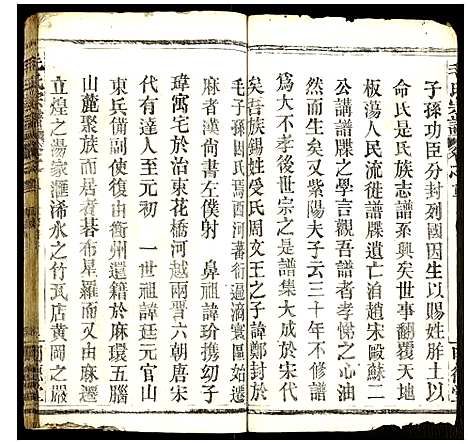 子孫功臣分封列國因生以賜姓胙土以
命氏是姓譜系興矣世事翻覆天地
板蕩人民流徙譜牒遺亡洎趙宋歐蘇二
公講譜牒之學言觀吾譜者孝悌之心油
然而生矣又紫陽夫子云三十年不修譜
為大不孝後世宗之是譜集大成焉
矣吾族錫姓受氏周文王之子諱鄭封於
毛子孫因氏焉西河蕃衍遍滴寰區始遷
麻者漢尚書左僕射 鼻祖諱玠携幼子
瑋寓宅於治東花橋河越兩晉六朝唐宋
代有達人至元初 一世祖諱廷元官山
東兵備副使由衢州還籍於麻環五腦
山麓聚族而居者碁布星羅而又失遷
立煌之湯家滙浠水之竹瓦店黄岡之嚴
毛氏宗譜